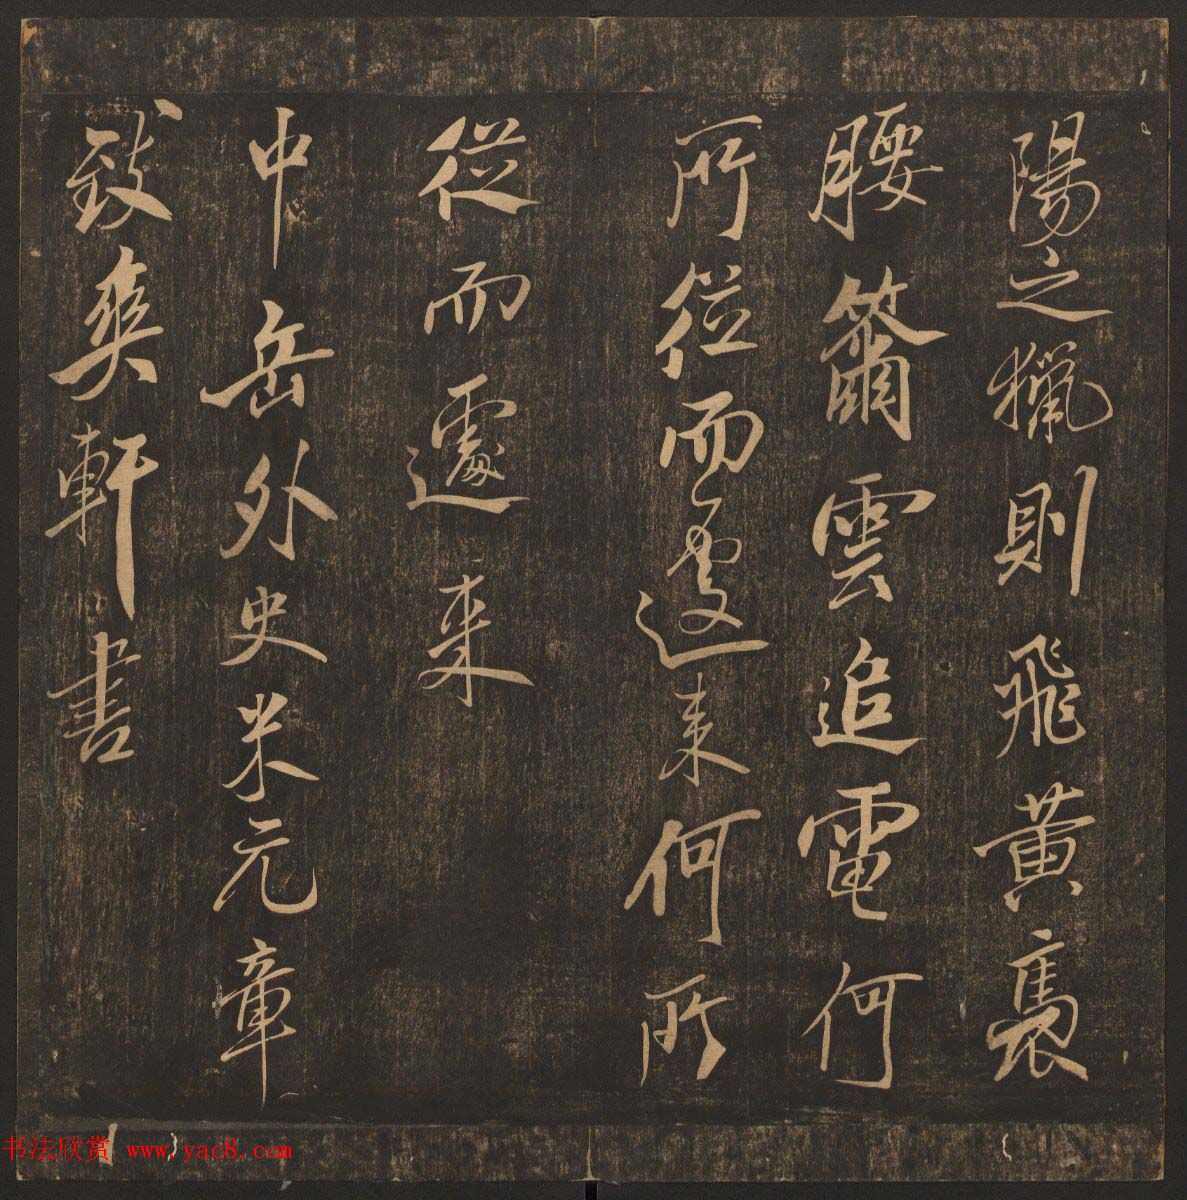 陽之獵則飛黃褭
腰籋雲追電何
所從而遽来何所
從而遽来
中岳外史米元章
致爽軒書
书法欣赏 www.yac8.com